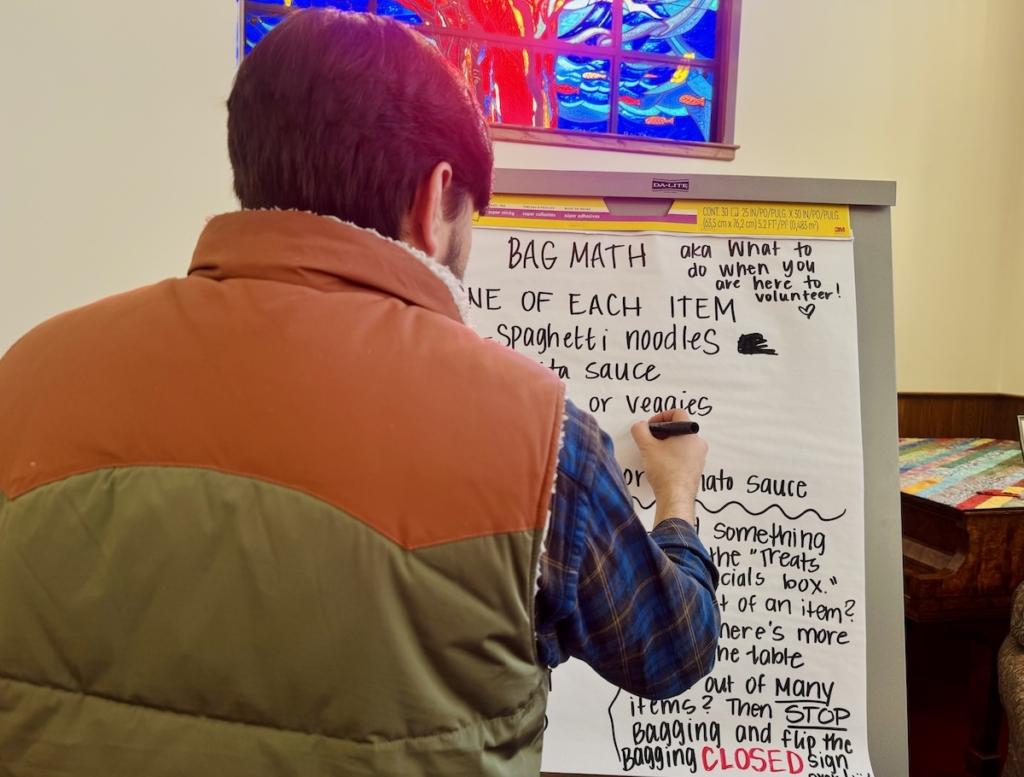 DA-LITE
super sticky super collantes súper adhesivas
CONT. 30 25 IN/PO/PULG. X 30 IN/PO/PULG.
(63,5 cm x 76,2 cm) 5.2 FT²/PI² (0,483 m²)
3M
BAG MATH aka What to
do when you
are here to
volunteer!
NE OF EACH ITEM
-Spaghetti noodles
ta sauce
or veggies
or ato sauce
something
the "Treats
cials box."
t of an item?
here's more
he table
out of MANY
items? Then STOP
Bagging and flip the
Bagging CLOSED sign